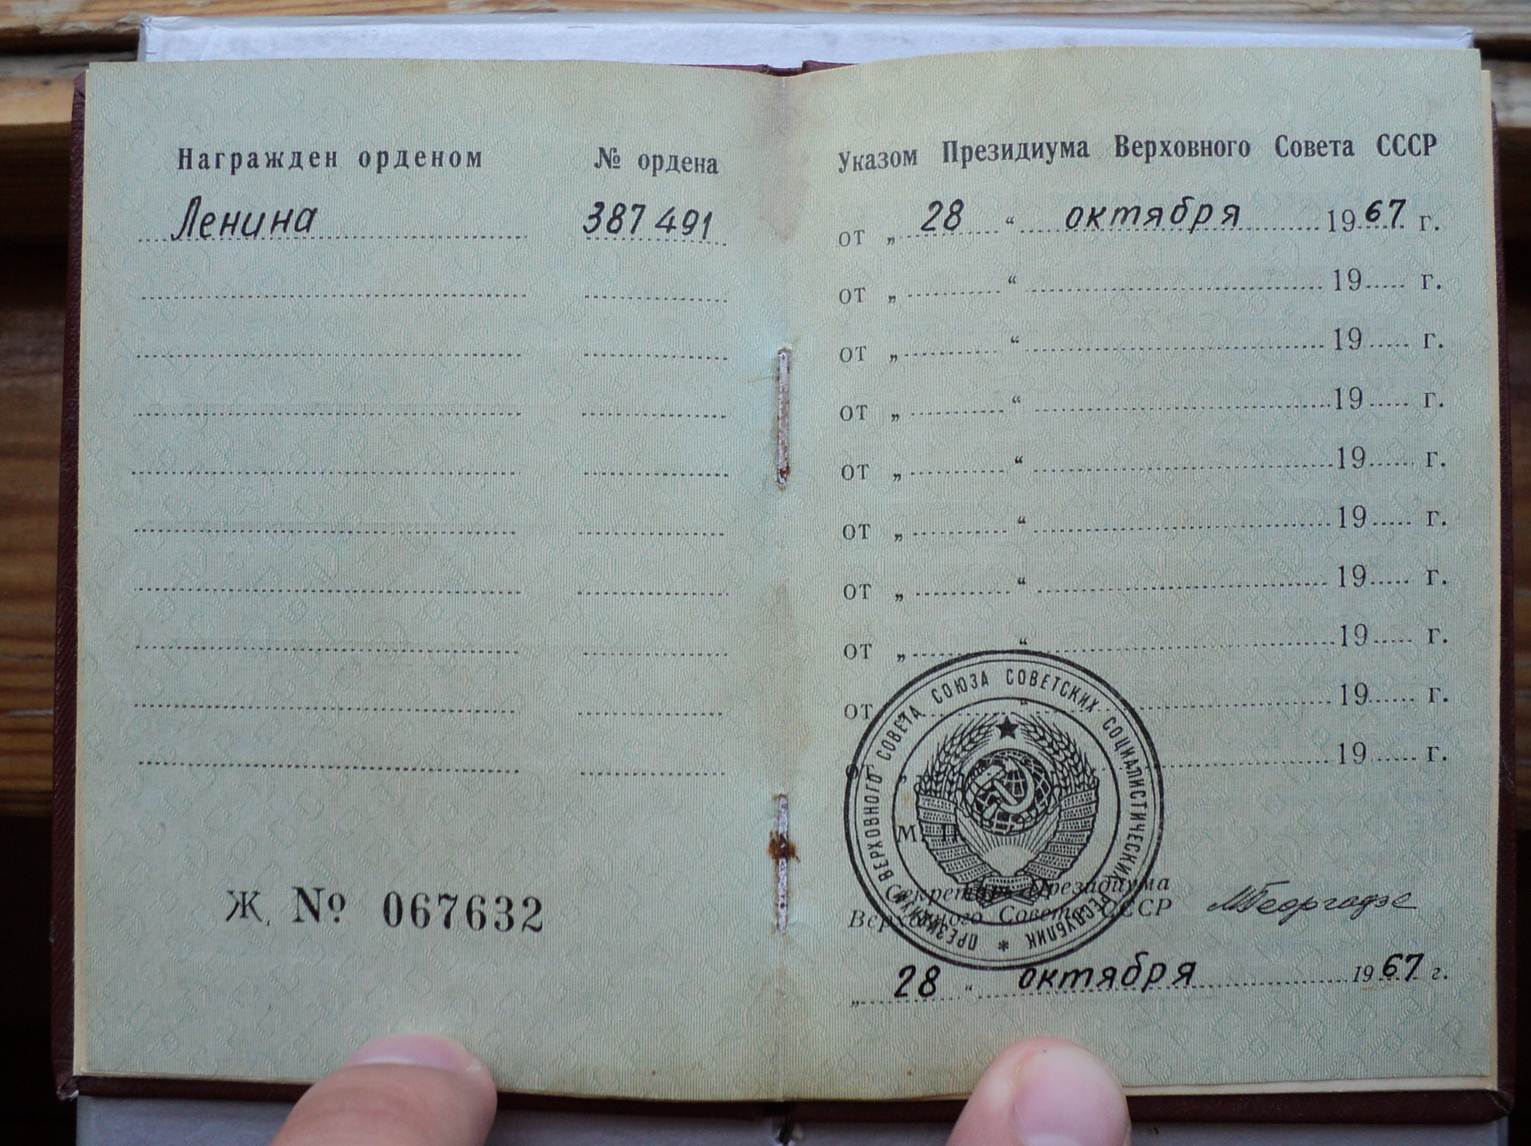 Награжден орденом № ордена
Ленина 387 491
Ж № 067632
Указом Президиума Верховного Совета СССР
от „ 28 “ октября 1967 г.
от „ “ 19 г.
от „ “ 19 г.
от „ “ 19 г.
от „ “ 19 г.
от „ “ 19 г.
от „ “ 19 г.
от „ “ 19 г.
от „ “ 19 г.
от „ 19 г.
М. П.
ПРЕЗИДИУМ ВЕРХОВНОГО СОВЕТА СОЮЗА СОВЕТСКИХ СОЦИАЛИСТИЧЕСКИХ РЕСПУБЛИК *
Секретарь Президиума
Верховного Совета СССР МГеоргадзе
„ 28 “ октября 1967 г.